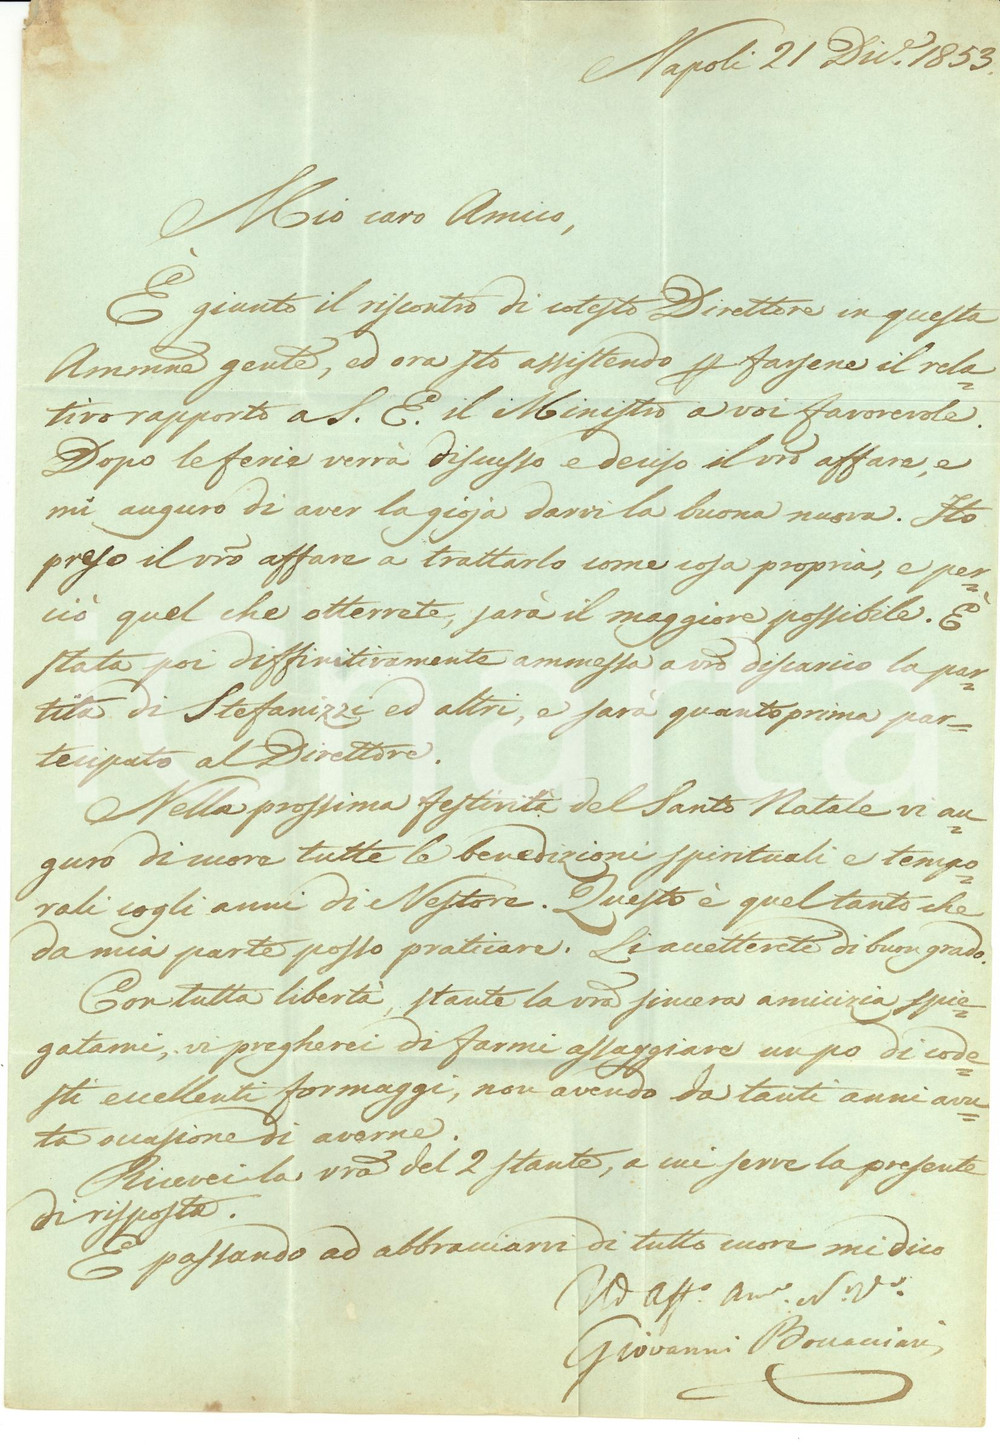 Napoli 21 Dic.e 1853.
Mio caro Amico,
È giunto il riscontro di cotesto Direttore in questa
Ammne gente, ed ora sto assistendo p farsene il rela=
tivo rapporto a S. E. il Ministro a voi favorevole.
Dopo le ferie verrà discusso e deciso il vro affare, e
mi auguro di aver la gioja darvi la buona nuova. Ho
preso il vro affare a trattarlo come cosa propria, e per=
ciò quel che otterrete, sarà il maggiore possibile. È
stata poi diffinitivamente ammessa a vro discarico la par=
tita di Stefanizzi ed altri, e sarà quantoprima par=
tecipato al Direttore.
Nella prossima festività del Santo Natale vi au=
guro di cuore tutte le benedizioni spirituali e tempo=
rali cogli anni di Nestore. Questo è quel tanto che
da mia parte posso praticare. Li accetterete di buon grado.
Con tutta libertà, stante la vra sincera amicizia spie=
gatami, vi pregherei di farmi assaggiare un po di code=
sti eccellenti formaggi, non avendo da tanti anni avu=
ta occasione di averne.
Ricevei la vra del 2 stante, a cui serve la presente
di risposta.
E passando ad abbracciarvi di tutto cuore mi dico
Aff.o Am.o
Giovanni Boccacciari
charta